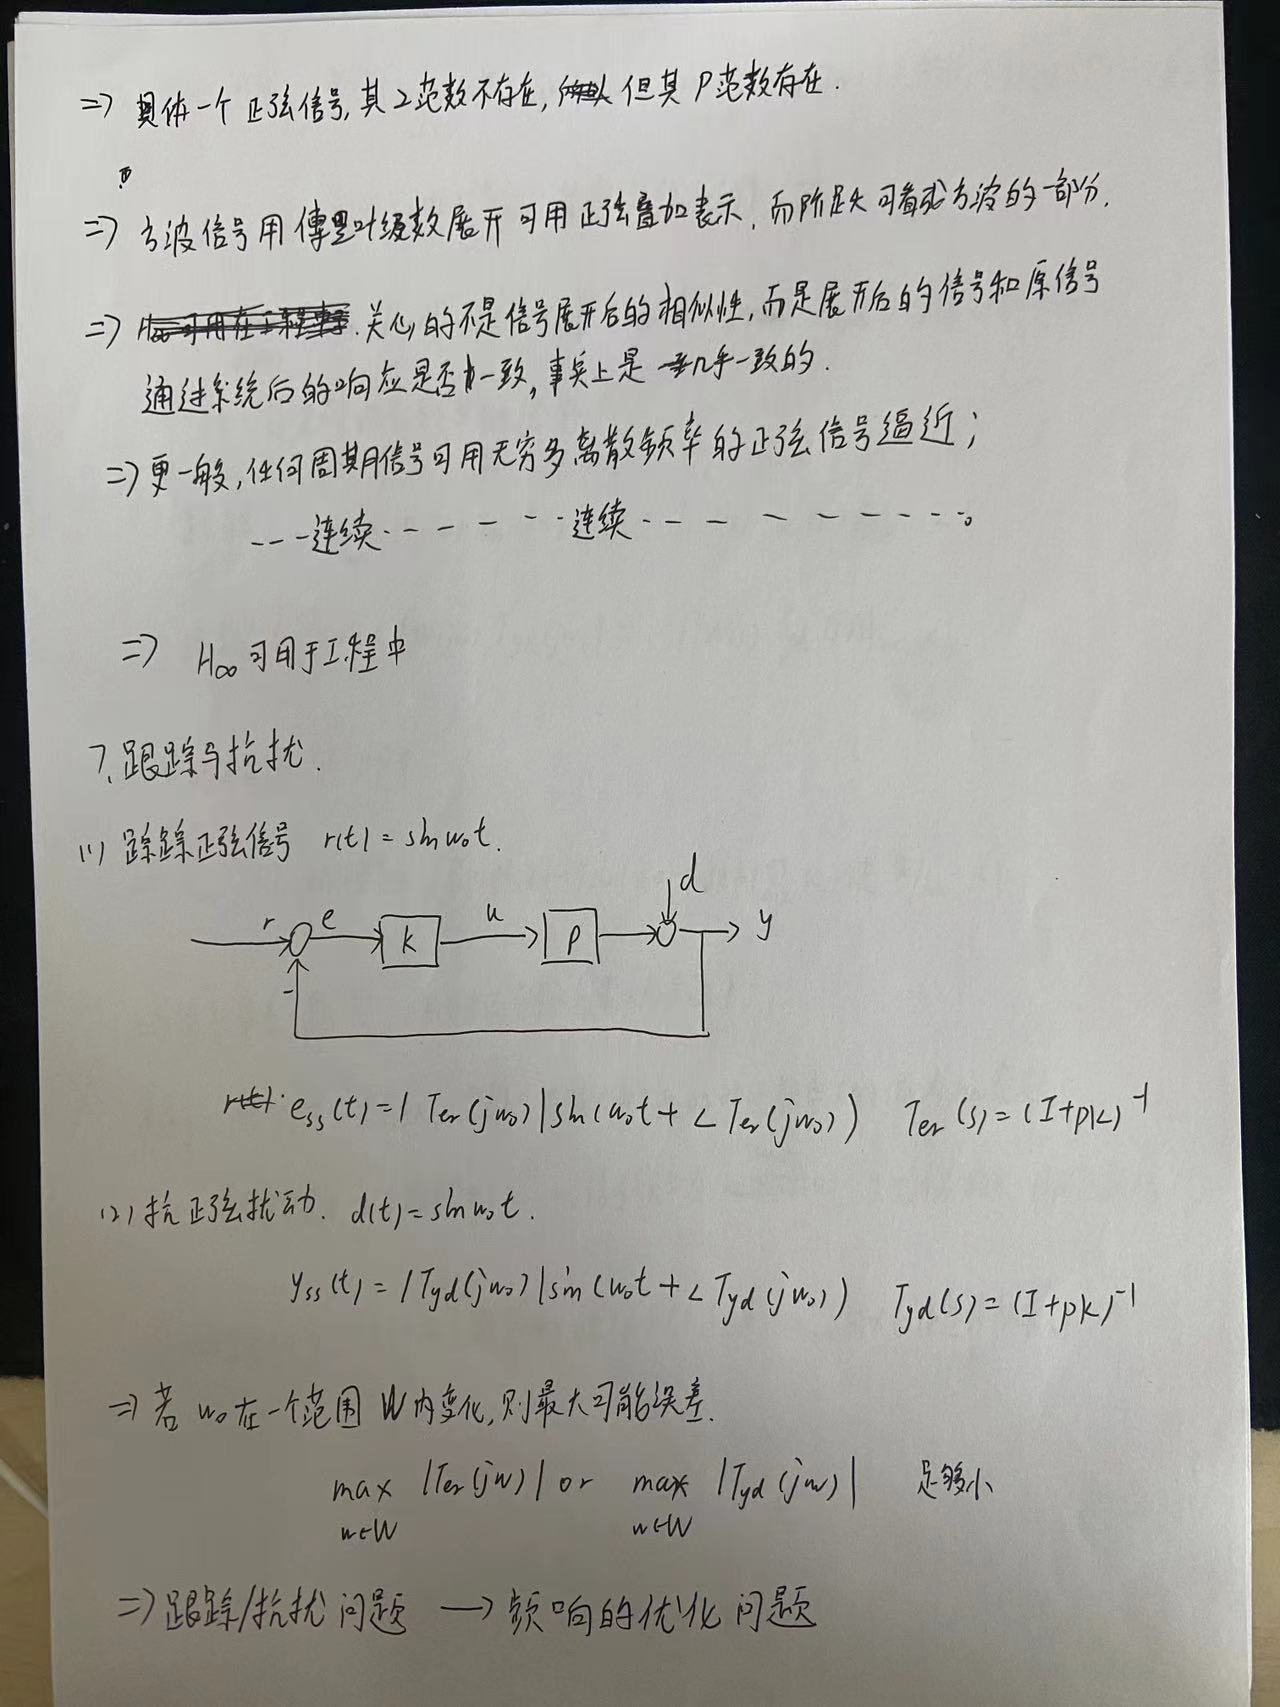 => 具体一个正弦信号,其2范数不存在,但其P范数存在.
=> 方波信号用傅里叶级数展开可用正弦叠加表示,而阶跃可看成方波的一部分.
=> 关心的不是信号展开后的相似性,而是展开后的信号和原信号
通过系统后的响应是否一致,事实上是几乎一致的.
=> 更一般,任何周期信号可用无穷多离散频率的正弦信号逼近;
---连续-----连续---------。
=> H∞可用于工程中
7.跟踪与抗扰.
(1) 跟踪正弦信号 r(t)=sinω₀t.
d
r e K u P y
-
e_ss(t)=|Ter(jω₀)|sin(ω₀t+∠Ter(jω₀)) Ter(s)=(I+PK)⁻¹
(2) 抗正弦扰动. d(t)=sinω₀t.
y_ss(t)=|Tyd(jω₀)|sin(ω₀t+∠Tyd(jω₀)) Tyd(s)=(I+PK)⁻¹
=> 若ω₀在一个范围W内变化,则最大可能误差.
max |Ter(jω)| or max |Tyd(jω)| 足够小
ω∈W ω∈W
=> 跟踪/抗扰问题 → 频响的优化问题